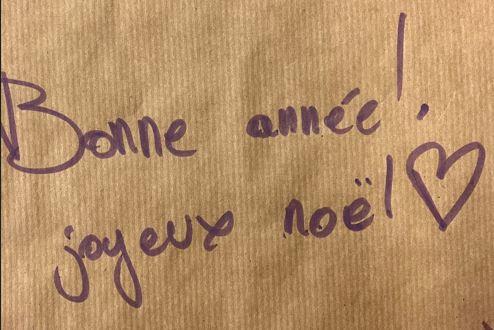 Bonne année!
joyeux noël! ♡